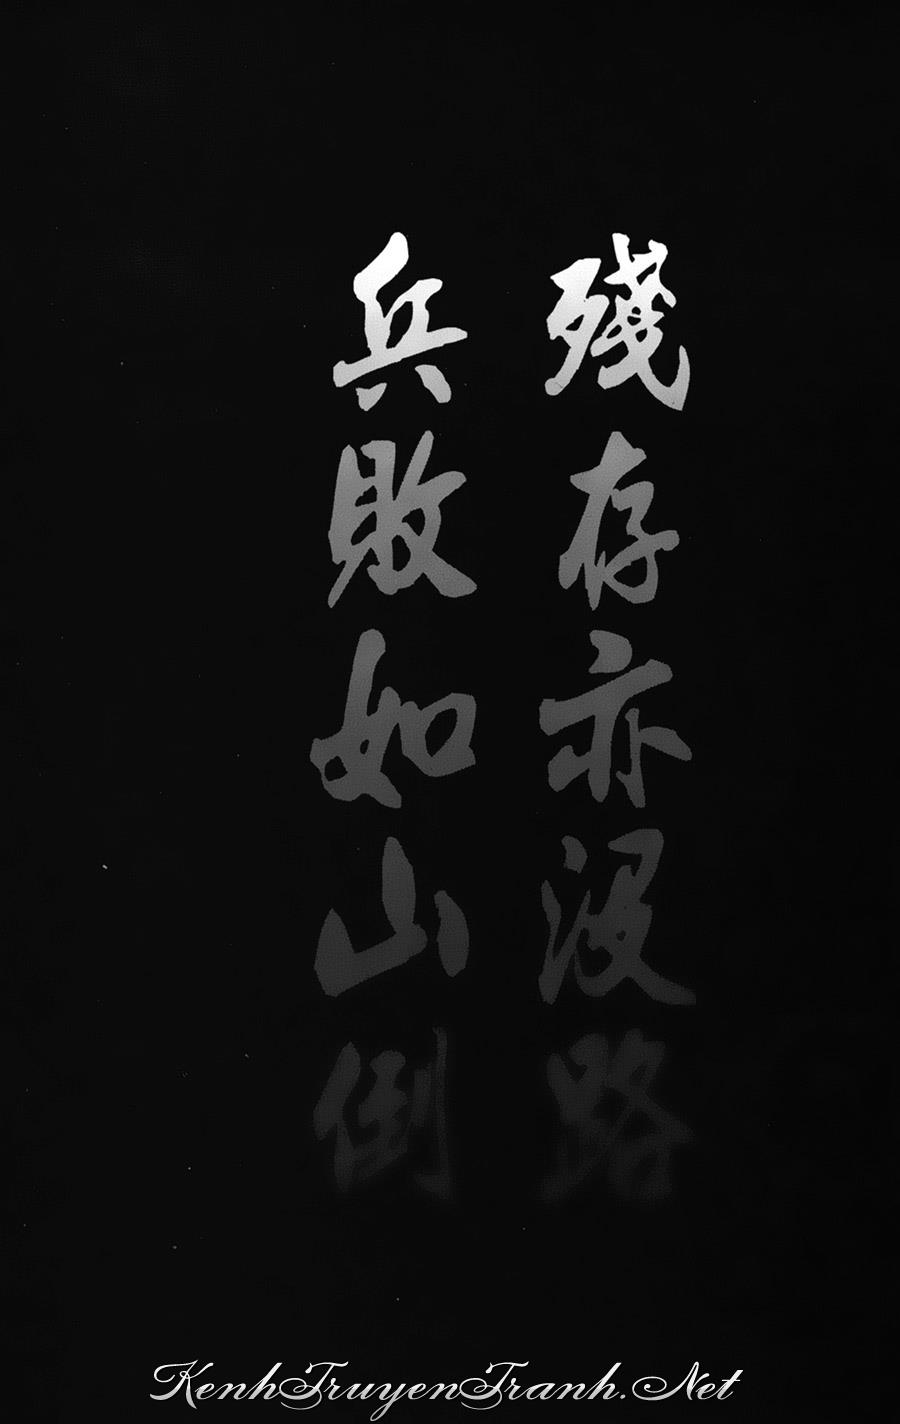 殘存亦沒路
兵敗如山倒
KenhTruyenTranh.Net